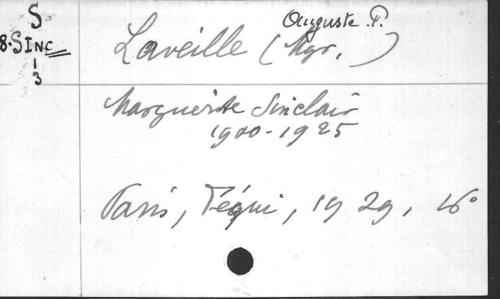 S
8·SINC
1
3
Auguste P.
Laveille (Mgr. )
Marguerite Sinclair
1900-1925
Paris, Téqui, 1929, 16°